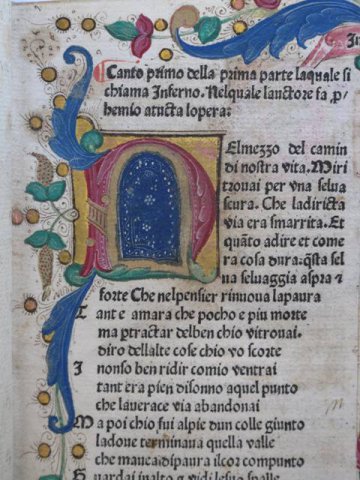 Canto primo della prima parte laquale si
chiama Inferno. Nelquale lauctore fa ꝓ
hemio atucta lopera:
NElmezzo del camin
di nostra vita. Miri
trouai per vna selua
scura. Che ladiricta
via era smarrita. Et
quãto adire et come
ra cosa dura: q̃sta sel
ua seluaggia aspra ⁊
forte Che nelpensier rinuoua lapaura
Tant e amara che pocho e piu morte
ma ꝑtractar delben chio vitrouai.
diro dellalte cose chio vo scorte
Inonso ben ridir comio ventrai
tant era pien disonno aquel punto
che lauerace via abandonai
Ma poi chio fui alpie dun colle giunto
ladoue terminaua quella valle
che mauea dipaura ilcor compunto
Guardai inalto ⁊ vidi lesue spalle